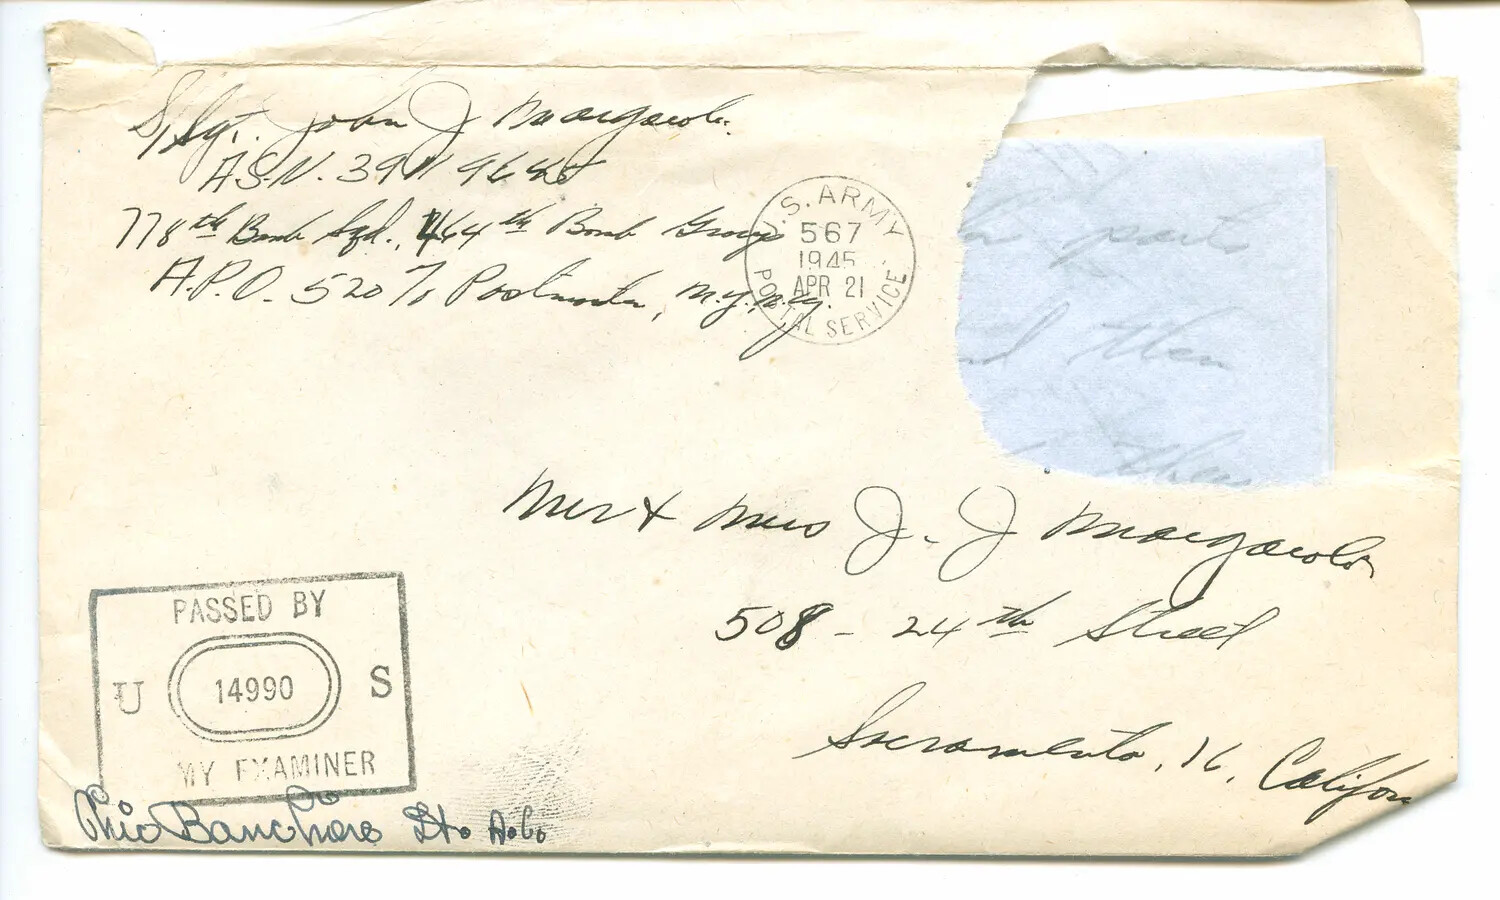 S/Sgt. John J Margarola.
A.S.N. 39119625
778th Bomb Sqd., 464th Bomb Group
A.P.O. 520 % Postmaster, N.Y., N.Y.
U.S. ARMY
567
1945
APR 21
POSTAL SERVICE
parts
then
then
Mr & Mrs J. J Margarola
508 - 24th Street
Sacramento, 16, Califor
PASSED BY
U 14990 S
MY EXAMINER
Lt. A.C.